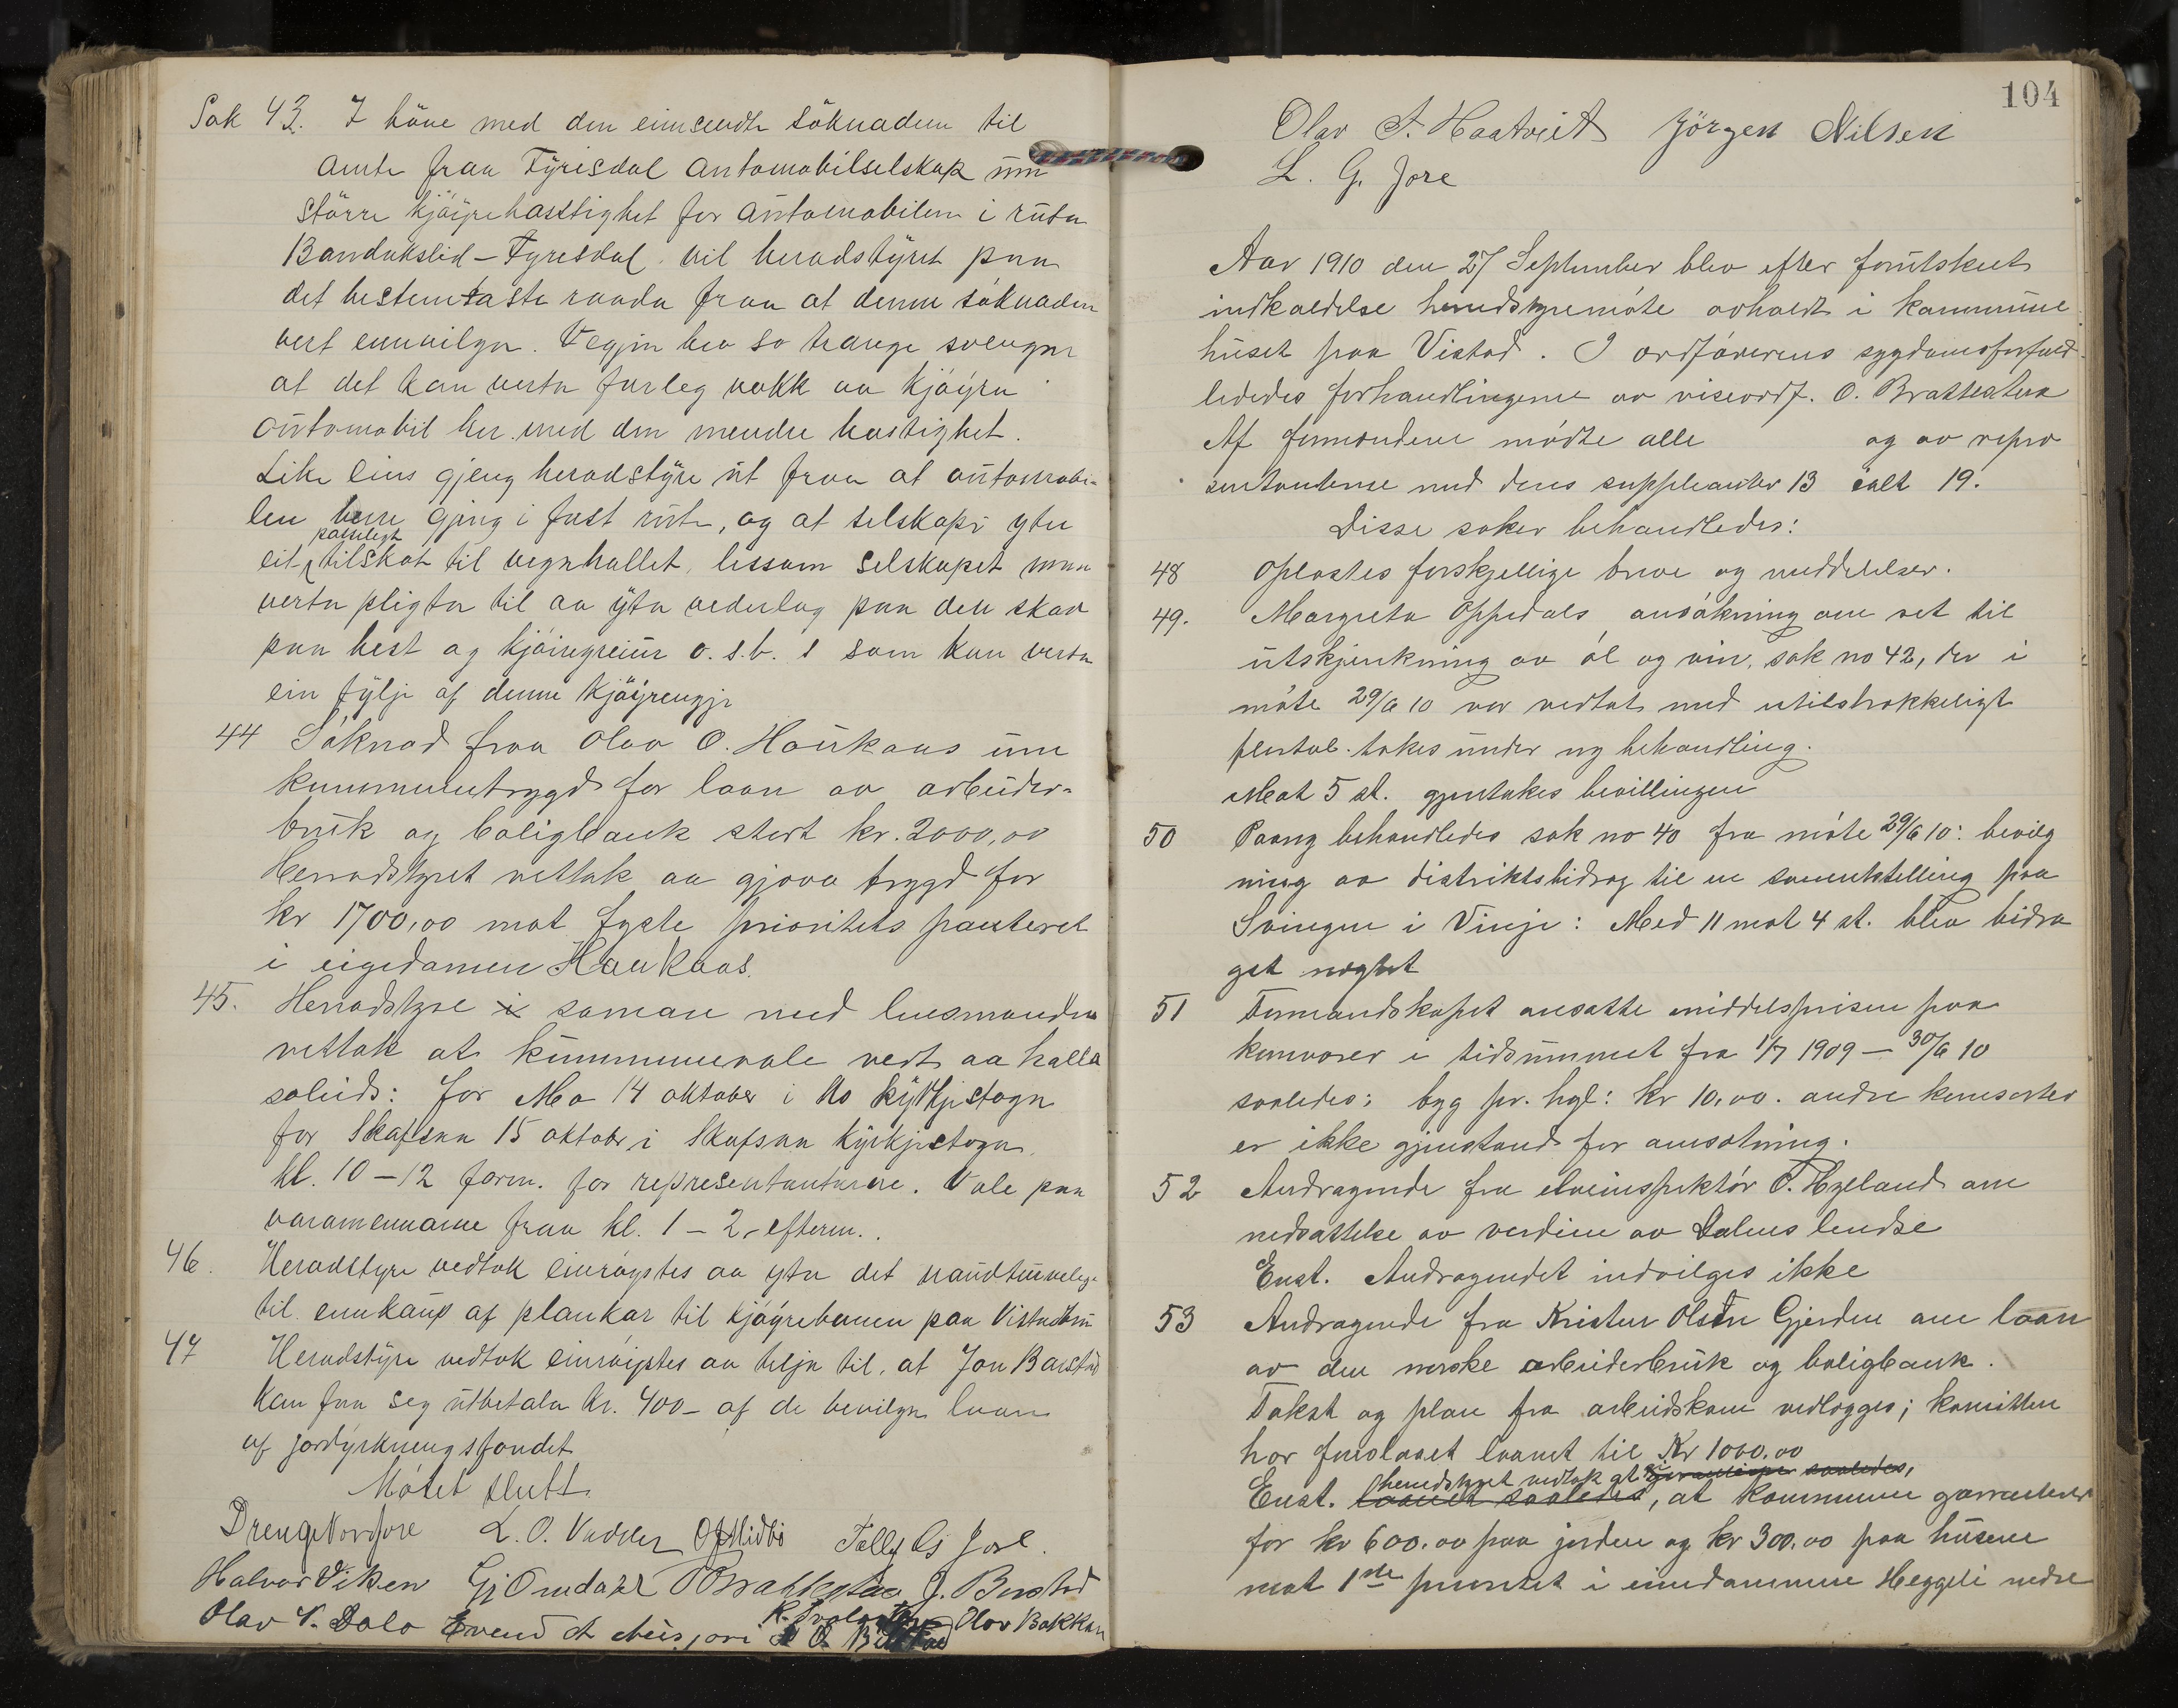 Sak 43. I höve med den einsendte söknaden til
amte fraa Tyrisdal automobilselskap um
större kjöyrehastighet for automobilen i ruta
Bandakslid - Tyresdal vil heradstyret paa
det bestemtaste raada fraa at denne söknaden
vert innvilga. Vegjin her so trange svengar
at det kan verta farleg nokk aa kjöyra
automobil her med den mendre hastighet.
Like eins gjeng heradstyre ut fraa at automobi-
len bere gjeng i fast rute, og at selskapi yter
paaleligt
eit tilskot til vegahallet, lessom selskapet maa
verta pligta til aa yta vederlag paa den skae
paa hest og kjöiregreiur o.s.v. som kan verta
ein fylje af denne kjöyrengji
44 Söknad fraa Olav O. Haukaas um
kummunetrygd for laan av arbeider-
bruk og boligbank stort kr. 2000,00
Herradstyret vettak aa gjova trygd for
kr 1700,00 mot fyste prioritets panteret
i eigedomen Haukaas.
45. Herradstyre i saman med lensmanden
vettok at kummunevale vert aa halla
soleids: for Mo 14 oktober i Mo kyrkjestogn
for Skafsaa 15 oktobr i Skafsaa kyrkjestogn
kl. 10-12 form. for representantarne. Vale paa
varamennarne fraa kl. 1-2 efterm.
46. Heradstyre vedtok einröystes aa yta det naudtunelege
til innkaup af plankar til kjöyrebanen paa Vistadbru
47 Heradstyre vedtok einröystes aa telja til, at Jon Barstad
kan faa seg utbetala kr. 400- af de bevilga laan
af jordyrkningsfondet
Mötet slutt
Drenge Nordjore L. O. Vadder O J Midbö Tellef Gj Jore.
Halvor Viken Gj Omdahl O Brattestaa J. Berstad
Olav V. Dalo Evend A Olav Bakkan
104
Olav A. Haatveit Jörgen Nilsen
L. G. Jore
Aar 1910 den 27 September blev efter forutskeet
indkaldelse heredstyremöte avholdt i kommune
huset paa Vistad. I ordförerens sygdomsforfald
lededes forhandlingerne av viseordf. O. Brattestaa
Af formændene mödte alle og av repræ
sentanterne med deres suppleanter 13 ialt 19.
Disse saker behandledes:
48 Oplæstes forskjellige breve og meddelelser.
49. Margreta Oppedals ansökning om ret til
utskjenkning av öl og vin, sak no 42, der i
möte 29/6 10 var vedtat med utilstrækkeligt
flertal. takes under ny behandling.
Mot 5 st. gjentakes bevillingen
50 Paany behandledes sak no 40 fra möte 29/6 10: bevilg
ning av distriktsbidrag til en samenkstelling paa
Svingen i Vinje: Med 11 mot 4 st. blev bidra
get nægtet
51 Formandskapet ansatte middelsprisen paa
kornvarer i tidsrummet fra 1/7 1909 - 30/6 10
saaledes; byg pr. hgl: kr 10,00. andre kornsorter
er ikke gjenstand for ansætning.
52 Andragende fra elveinspektör O. Hyeland om
nedsættelse av verdien av Dalens lendse
Enst. Andragendet indvilges ikke
53 Andragende fra Kristen Olsen Gjerden om laan
av den norske arbeiderbruk og boligbank.
Takst og plan fra arbeidskom vedlægges; komitten
har foreslaaet laanet til Kr 1000,00
heredstyret vedtok at saaledes,
Enst. laanet saaledes, at kommunen garanterer
for kr 600.00 paa jorden og kr 300,00 paa husene
mot 1ste prioritet i eiendommene Heggeli nedre